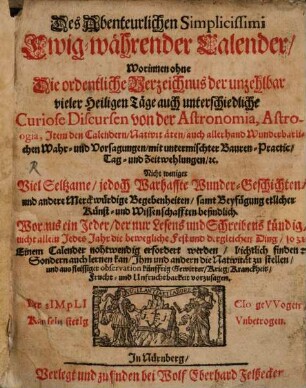 Des Abenteurlichen Simplicissimi
Ewig währender Calender/
Worinnen ohne
Die ordentliche Verzeichnus der unzehlbar
vieler Heiligen Täge auch unterschiedliche
Curiose Discursen von der Astronomia, Astro-
logia, Item den Calendern, Nativitäten, auch allerhand Wunderbarli-
chen Wahr- und Vorsagungen/ mit untermischter Bauren-Practic/
Tag- und Zeitwehlungen/ etc.
Nicht weniger
Viel Seltzame/ jedoch Warhaffte Wunder-Geschichten/
und andere Merckwürdige Begebenheiten/ samt Beyfügung etlicher
Künst- und Wissenschafften befindlich.
Woraus ein Jeder/ der nur Lesens und Schreibens kündig/
nicht allein Jedes Jahr die bewegliche Fest und dergleichen Ding/ so zu
Einem Calender nohtwendig erfordert werden/
Sondern auch lernen kan/ Ihm und andern die Nativität zu stellen/
und aus fleissiger observation künfftig Gewitter/ Krieg/ Kranckheit/
Frucht- und Unfruchtbarkeit vorzusagen.
Der SIMPLI
In Nürnberg/
Verlegt und zu finden bei Wolf Eberhard Felßecker